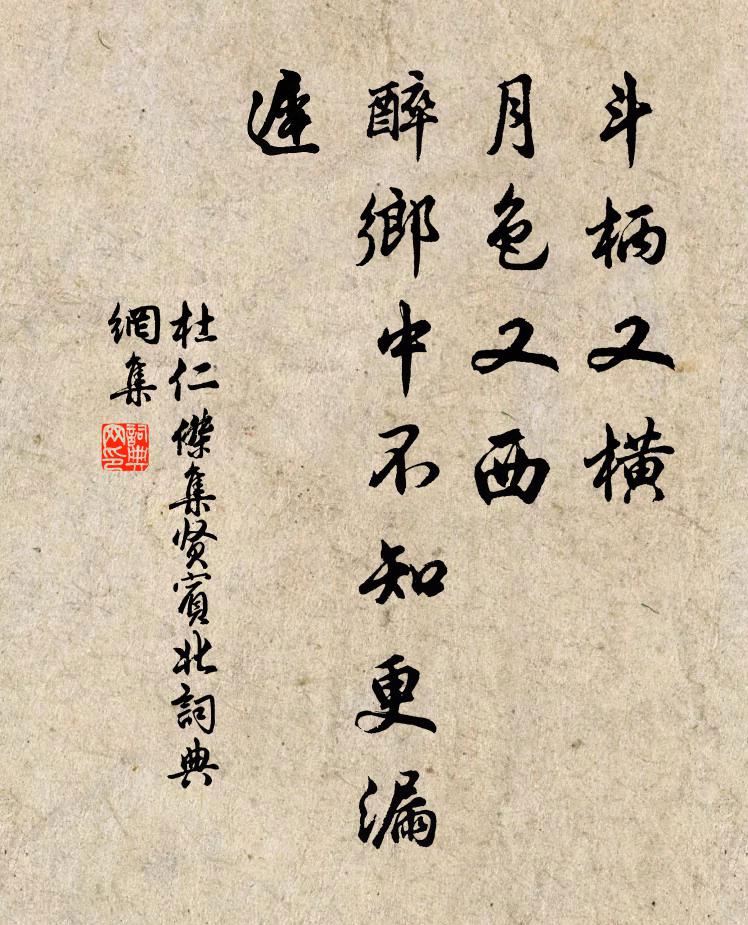 斗柄又橫
月色又西
醉鄉中不知更漏
遲
杜仁傑集賢賓北詞典
網集
詞典
网印